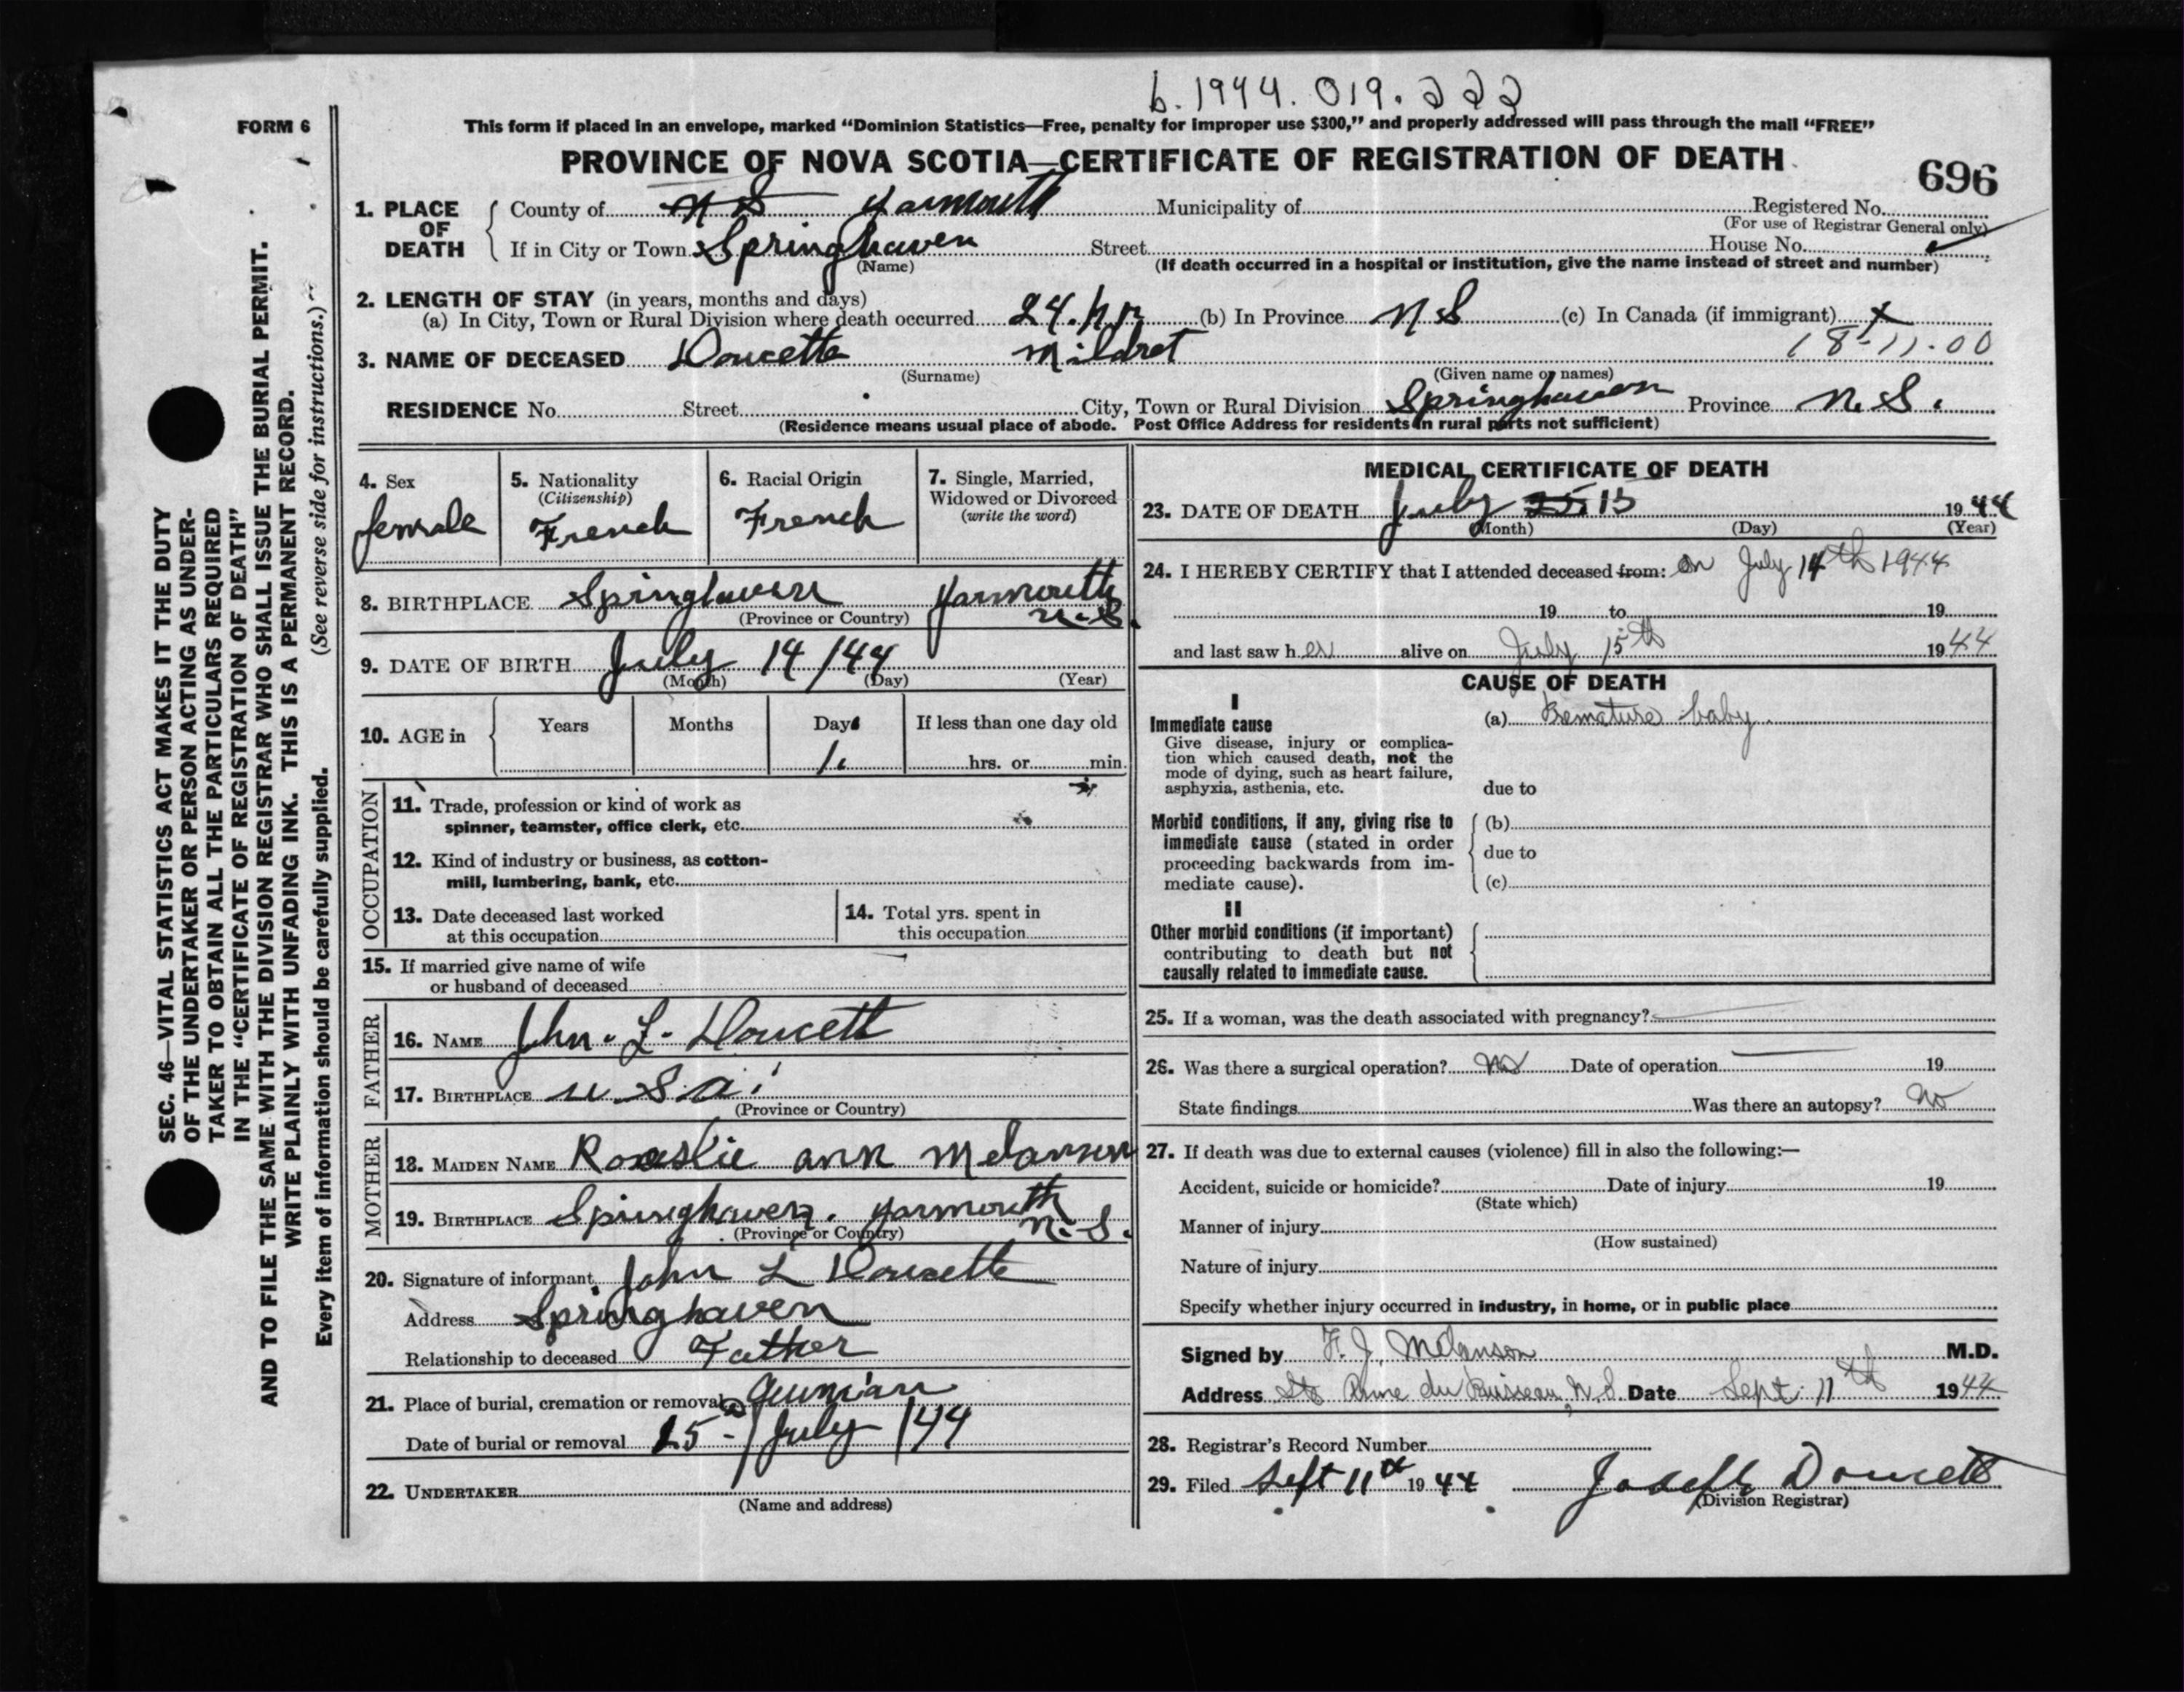 b. 1944. 019. 222
FORM 6
This form if placed in an envelope, marked "Dominion Statistics—Free, penalty for improper use $300," and properly addressed will pass through the mail "FREE"
PROVINCE OF NOVA SCOTIA—CERTIFICATE OF REGISTRATION OF DEATH
696
1. PLACE OF DEATH
County of N S Yarmouth Municipality of Registered No.
(For use of Registrar General only)
If in City or Town Springhaven Street House No.
(Name) (If death occurred in a hospital or institution, give the name instead of street and number)
2. LENGTH OF STAY (in years, months and days)
(a) In City, Town or Rural Division where death occurred 24. hr (b) In Province N S (c) In Canada (if immigrant) x
18-11-00
3. NAME OF DECEASED Doucette Mildret
(Surname) (Given name or names)
RESIDENCE No. Street City, Town or Rural Division Springhaven Province N. S.
(Residence means usual place of abode. Post Office Address for residents in rural parts not sufficient)
4. Sex
female
5. Nationality
(Citizenship)
French
6. Racial Origin
French
7. Single, Married,
Widowed or Divorced
(write the word)
8. BIRTHPLACE Springhaven Yarmouth
(Province or Country) N.S.
9. DATE OF BIRTH July 14/44
(Month) (Day) (Year)
10. AGE in
Years Months Days If less than one day old
1. hrs. or min.
OCCUPATION
11. Trade, profession or kind of work as
spinner, teamster, office clerk, etc.
12. Kind of industry or business, as cotton-
mill, lumbering, bank, etc.
13. Date deceased last worked
at this occupation
14. Total yrs. spent in
this occupation
15. If married give name of wife
or husband of deceased
FATHER
16. NAME John. L. Doucett
17. BIRTHPLACE U. S. A.
(Province or Country)
MOTHER
18. MAIDEN NAME ann Melanson
19. BIRTHPLACE Springhaven. Yarmouth
(Province or Country) N. S.
20. Signature of informant John L Doucette
Address Springhaven
Relationship to deceased Father
21. Place of burial, cremation or removal
Date of burial or removal 15-/July/44
22. UNDERTAKER
(Name and address)
MEDICAL CERTIFICATE OF DEATH
23. DATE OF DEATH July 25 15 1944
(Month) (Day) (Year)
24. I HEREBY CERTIFY that I attended deceased from: on July 14th 1944
19 to 19
and last saw her alive on July 15th 1944
CAUSE OF DEATH
I
Immediate cause
Give disease, injury or complica-
tion which caused death, not the
mode of dying, such as heart failure,
asphyxia, asthenia, etc.
(a) Premature baby.
due to
Morbid conditions, if any, giving rise to
immediate cause (stated in order
proceeding backwards from im-
mediate cause).
(b)
due to
(c)
II
Other morbid conditions (if important)
contributing to death but not
causally related to immediate cause.
25. If a woman, was the death associated with pregnancy?
26. Was there a surgical operation? No Date of operation 19
State findings Was there an autopsy? No
27. If death was due to external causes (violence) fill in also the following:—
Accident, suicide or homicide? Date of injury 19
(State which)
Manner of injury
(How sustained)
Nature of injury
Specify whether injury occurred in industry, in home, or in public place
Signed by F. J. Melanson M.D.
Address Ste Anne du Ruisseau, N. S. Date Sept. 11th 1944
28. Registrar's Record Number
29. Filed Sept 11th 1944 Joseph Doucett
(Division Registrar)
SEC. 46—VITAL STATISTICS ACT MAKES IT THE DUTY
OF THE UNDERTAKER OR PERSON ACTING AS UNDER-
TAKER TO OBTAIN ALL THE PARTICULARS REQUIRED
IN THE "CERTIFICATE OF REGISTRATION OF DEATH"
AND TO FILE THE SAME WITH THE DIVISION REGISTRAR WHO SHALL ISSUE THE BURIAL PERMIT.
WRITE PLAINLY WITH UNFADING INK. THIS IS A PERMANENT RECORD.
Every item of information should be carefully supplied. (See reverse side for instructions.)